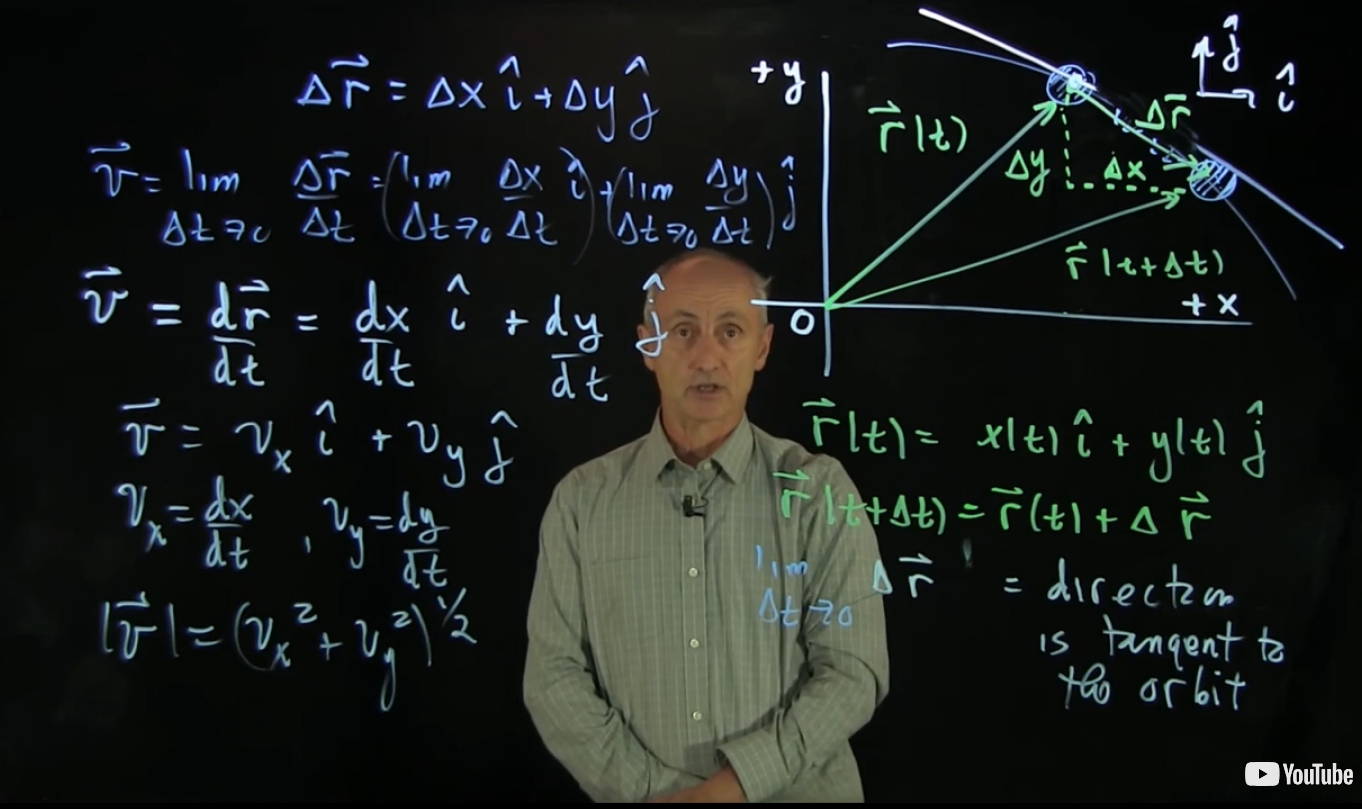 Δr⃗ = Δx î + Δy ĵ
v⃗ = lim Δt→0 Δr⃗/Δt = (lim Δt→0 Δx/Δt î) + (lim Δt→0 Δy/Δt) ĵ
v⃗ = dr⃗/dt = dx/dt î + dy/dt ĵ
v⃗ = vₓ î + v_y ĵ
vₓ = dx/dt , v_y = dy/dt
|v⃗| = (vₓ² + v_y²)^1/2
+y
ĵ
î
r⃗(t)
Δr⃗
Δy
Δx
r⃗(t+Δt)
+x
0
r⃗(t) = x(t) î + y(t) ĵ
r⃗(t+Δt) = r⃗(t) + Δr⃗
lim Δt→0 Δr⃗ = direction
is tangent to
the orbit
YouTube